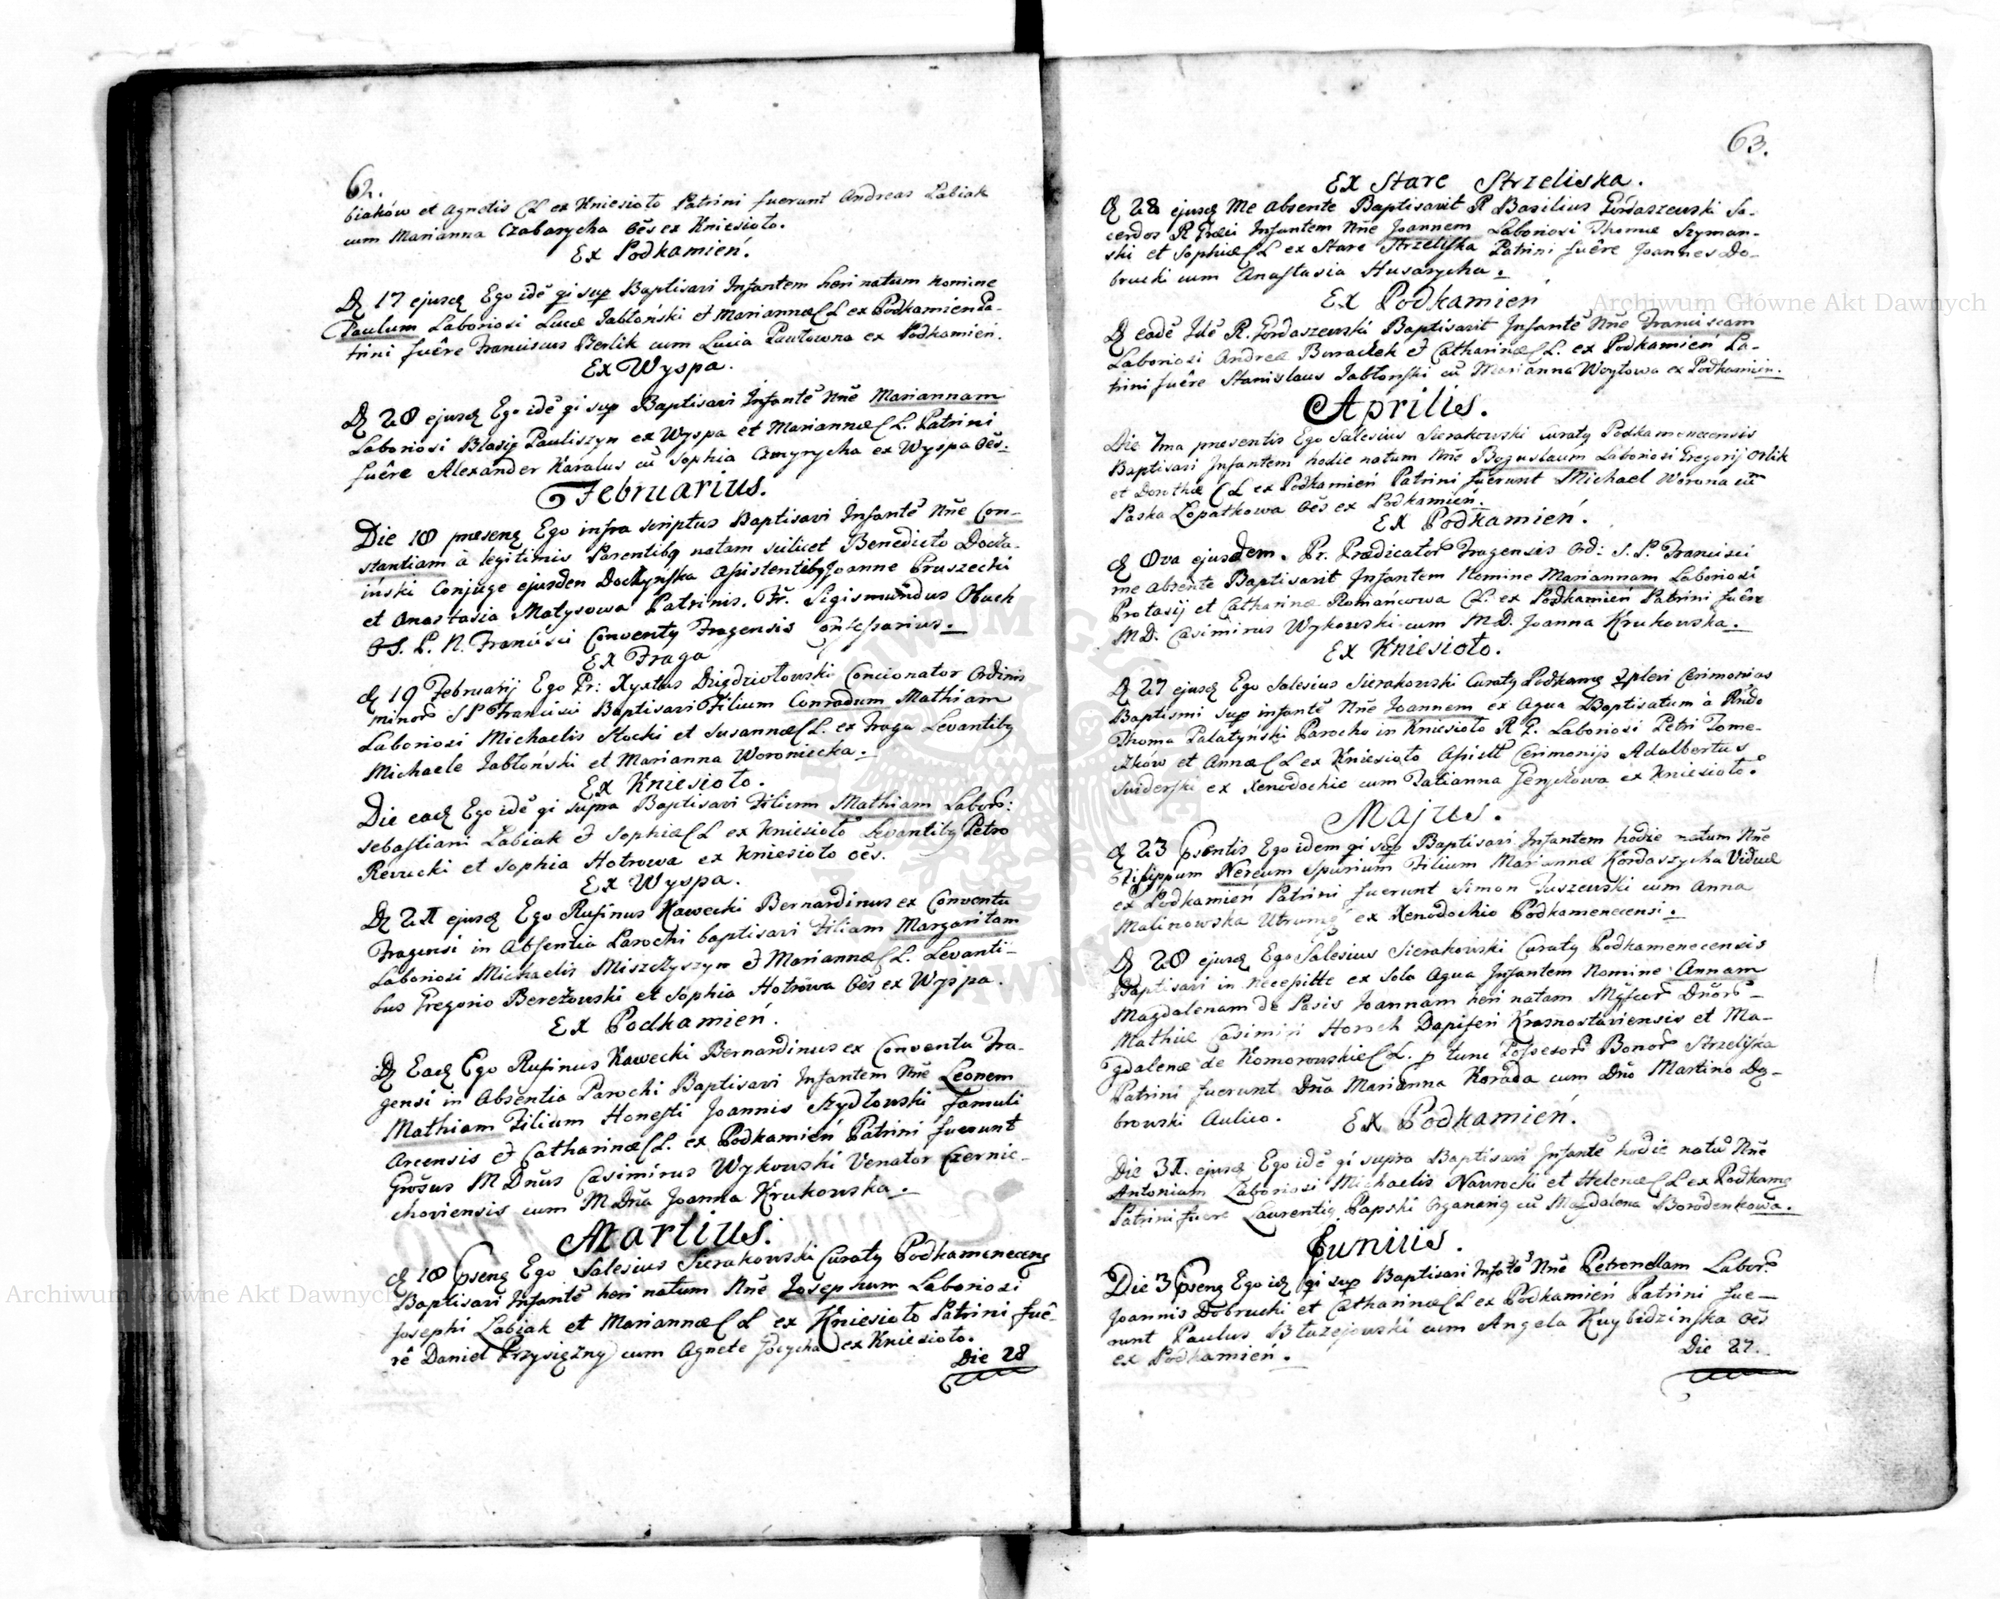 62.
biaków et Agnetis CL ex Kniesioło Patrini fuerunt Andreas Labiak
cum Marianna Czabarycha oēs ex Kniesioło.
Ex Podkamień.
17 ejusq Ego idē qi sup Baptisavi Infantem heri natum nomine
Paulum Laboriosi Lucæ Jabłoński et Mariannæ CL ex Podkamień Pa-
trini fuêre Franciscus Berlik cum Lucia Pawłowna ex Podkamień.
Ex Wyspa.
28 ejusq Ego idē qi sup Baptisavi Infantē Nn̄e Mariannam
Laboriosi Blasij Pauliszyn ex Wyspa et Mariannæ CL. Patrini
fuêre Alexander Karalus cū Sophia ex Wyspa oēs.
Februarius.
Die 18 Ego infra scriptus Baptisavi Infantē Nn̄e Con-
stantiam à legitimis Parentibq natam scilicet Benedicto Docza-
iński Conjuge ejusdem Doczynska Assistentibq Joanne Pruszecki
et Anastasia Matysowa Patrinis. Fr. Sigismundus Obuch
O S. P. N. Francisci Conventq Fragensis Confessarius.
Ex Fraga
19 Februarij Ego Pr: Xystus Concionator Ordinis
minor S P Francisci Baptisavi Filium Conradum Mathiam
Laboriosi Michaelis Stocki et Susannæ CL. ex Fraga Levantibq
Michaele Jabłoński et Marianna Woroniecka.
Ex Kniesioło.
Die eadq Ego idē qi supra Baptisavi Filium Mathiam Labor:
Sebastiani Labiak et Sophiæ CL ex Kniesioło Levantibq Petro
Revucki et Sophia Hotrowa ex Kniesioło oēs.
Ex Wyspa.
21 ejusq Ego Rufinus Kawecki Bernardinus ex Conventu
Fragensi in Absentia Parochi baptisavi Filiam Margaritam
Laboriosi Michaelis et Mariannæ CL. Levanti-
bus Gregorio Bereżowski et Sophia Hotrowa oēs ex Wyspa.
Ex Podkamień.
Eadq Ego Rufinus Kawecki Bernardinus ex Conventu Fra-
gensi in Absentia Parochi Baptisavi Infantem Nn̄e Leonem
Mathiam Filium Honesti Joannis Szydłowski Famuli
Arcensis et Catharinæ CL. ex Podkamień Patrini fuerunt
Grōsus M Dn̄us Casimirus Wykowski Venator Czernie-
choviensis cum M Dn̄a Joanna Krukowska.
Martius.
18 Ego Salesius Sierakowski Curatq Podkamenecenq
Baptisavi Infantē heri natum Nn̄e Josephum Laboriosi
Josephi Labiak et Mariannæ CL ex Kniesioło Patrini fuê-
rê Daniel Przysiężny cum Agnete ex Kniesioło.
Die 28
63.
Ex Stare Strzeliska.
28 ejusq Me absente Baptisavit R Basilius Gordaszewski Sa-
cerdos R Græci Infantem Nn̄e Joannem Laboriosi Thomæ Szyman-
ski et Sophiæ CL ex Stare Strzeliska Patrini fuêre Joannes Do-
brucki cum Anastasia Husarycha.
Ex Podkamień
eadē Idē R. Gordaszewski Baptisavit Infantē Nn̄e Franciscam
Laboriosi Andreæ Buraczek et Catharinæ CL. ex Podkamień Pa-
trini fuêre Stanislaus Jabłonski cū Marianna Woytowa ex Podkamień.
Aprilis.
Die 7ma presentis Ego Salesius Sierakowski Curatq Podkamenecensis
Baptisavi Infantem hodie natum Nn̄e Boguslaum Laboriosi Gregorij Orlik
et Dorothæ CL ex Podkamień Patrini fuerunt Michael Worona cū
Paska Łopatkowa oēs ex Podkamień.
Ex Podkamień.
8va ejusdem. Pr. Prædicator Fragensis Ord: S. P. Francisci
me absente Baptisavit Infantem Nomine Mariannam Laboriosi
Protasij et Catharinæ Romańcowa CL. ex Podkamień Patrini fuêre
M D. Casimirus Wykowski cum M D. Joanna Krukowska.
Ex Kniesioło.
27 ejusq Ego Salesius Sierakowski Curatq Podkamq Cerimonias
Baptismi sup infantē Nn̄e Joannem ex Aqua Baptisatum à Rn̄do
Thoma Palatyński Parocho in Kniesioło R L. Laboriosi Petri Tome-
czków et Annæ CL ex Kniesioło Cerimonijs Adalbertus
Swiderski ex Xenodochio cum Tatianna ex Kniesioło.
Majus.
23 Ego idem qi sup Baptisavi Infantem hodie natum Nn̄e
Nereum Spurium Filium Mariannæ Kordaszycha Viduæ
ex Podkamień Patrini fuerunt Simon Tuszewski cum Anna
Malinowska Utrumq ex Xenodochio Podkamenecensi.
28 ejusq Ego Salesius Sierakowski Curatq Podkamenecensis
Baptisavi in necessitte ex Sola Aqua Infantem Nomine Annam
Magdalenam de Pasis Joannam heri natam Dn̄or-
Mathiæ Casimiri Horoch Dapiferi Krasnostaviensis et Ma-
gdalenæ de Komorowskie CL. p tunc Possesor Bonor Strzeliska
Patrini fuerunt Dn̄a Marianna Korada cum Dn̄o Martino Dą-
browski Aulico.
Ex Podkamień.
Die 31. ejusq Ego idē qi supra Baptisavi Infantē hodie natū Nn̄e
Antonium Laboriosi Michaelis Nawrocki et Helenæ CL ex Podkamq
Patrini fuere Laurentiq Papski Organariq cū Magdalena Borodenkowa.
Junius.
Die 3 Ego idq qi sup Baptisavi Infātē Nn̄e Petronellam Labor:
Joannis Dobrucki et Catharinæ CL ex Podkamień Patrini fue-
runt Paulus Błazejowski cum Angela Kuybidzinska oēs
ex Podkamień.
Die 27.
Archiwum Główne Akt Dawnych
Archiwum Główne Akt Dawnych